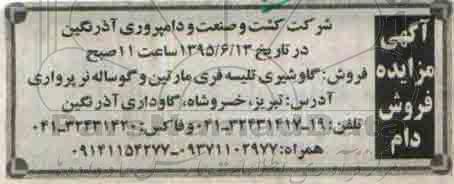 آگهی
مزایده
فروش
دام
شرکت کشت و صنعت و دامپروری آذرنگین
در تاریخ ۱۳۹۵/۶/۱۳ ساعت ۱۱ صبح
فروش: گاو شیری تلیسه فری مارتین و گوساله نر پرواری
آدرس: تبریز، خسروشاه، گاوداری آذرنگین
تلفن: ۱۹-۳۲۴۳۱۴۱۷-۰۴۱ و فاکس: ۳۲۴۳۱۴۲۰-۰۴۱
همراه: ۰۹۳۷۱۱۰۲۹۷۷-۰۹۱۴۱۱۵۴۲۷۷